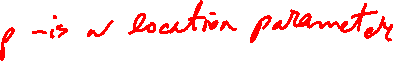 ρ - is a location parameter